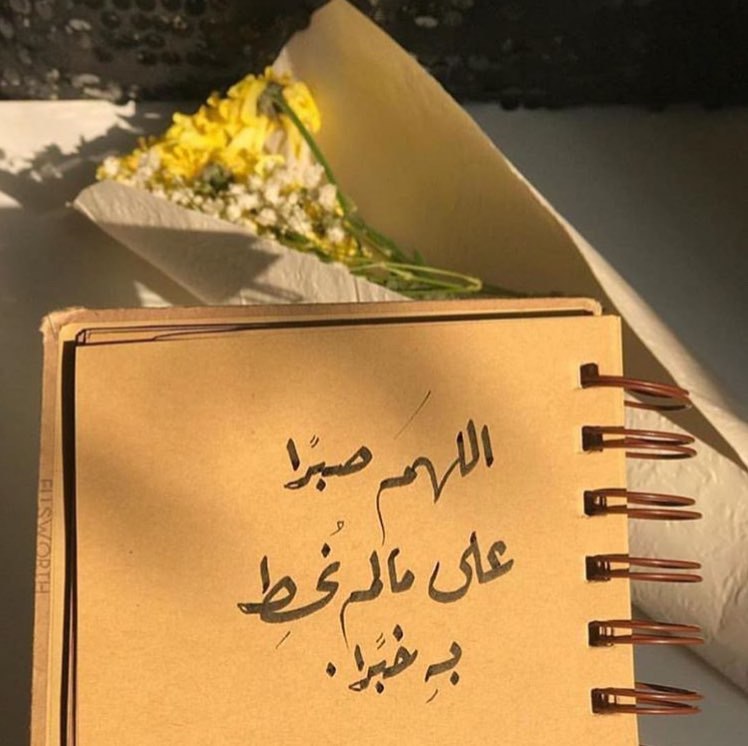 اللهمَ صبرًا
على مالم نُحطِ
بهِ خبرًا.
ELLSWORTH